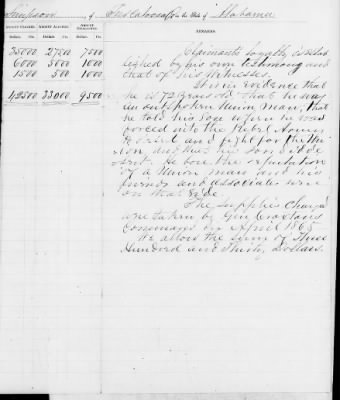 Simpson of Tuscaloosa in the State of Alabama
AMOUNT CLAIMED. AMOUNT ALLOWED. AMOUNT DISALLOWED. REMARKS.
Dollars. Cts. Dollars. Cts. Dollars. Cts.
350 00 275 00 75 00 Claimants loyalty is estab
60 00 50 00 10 00 lished by his own testimony and
15 00 5 00 10 00 that of his witnesses.
It is in evidence that
425 00 330 00 95 00 he is 72 years old that he was
an outspoken Union man, that
he told his son when he was
forced into the Rebel Army
to desert and fight for the Un
ion, and that the son did de
sert. He bore the reputation
of a Union man and his
friends and associates were
on that side.
The supplies charged
were taken by Gen Croxtons
command in April 1865
We allow the sum of Three
Hundred and Thirty Dollars.